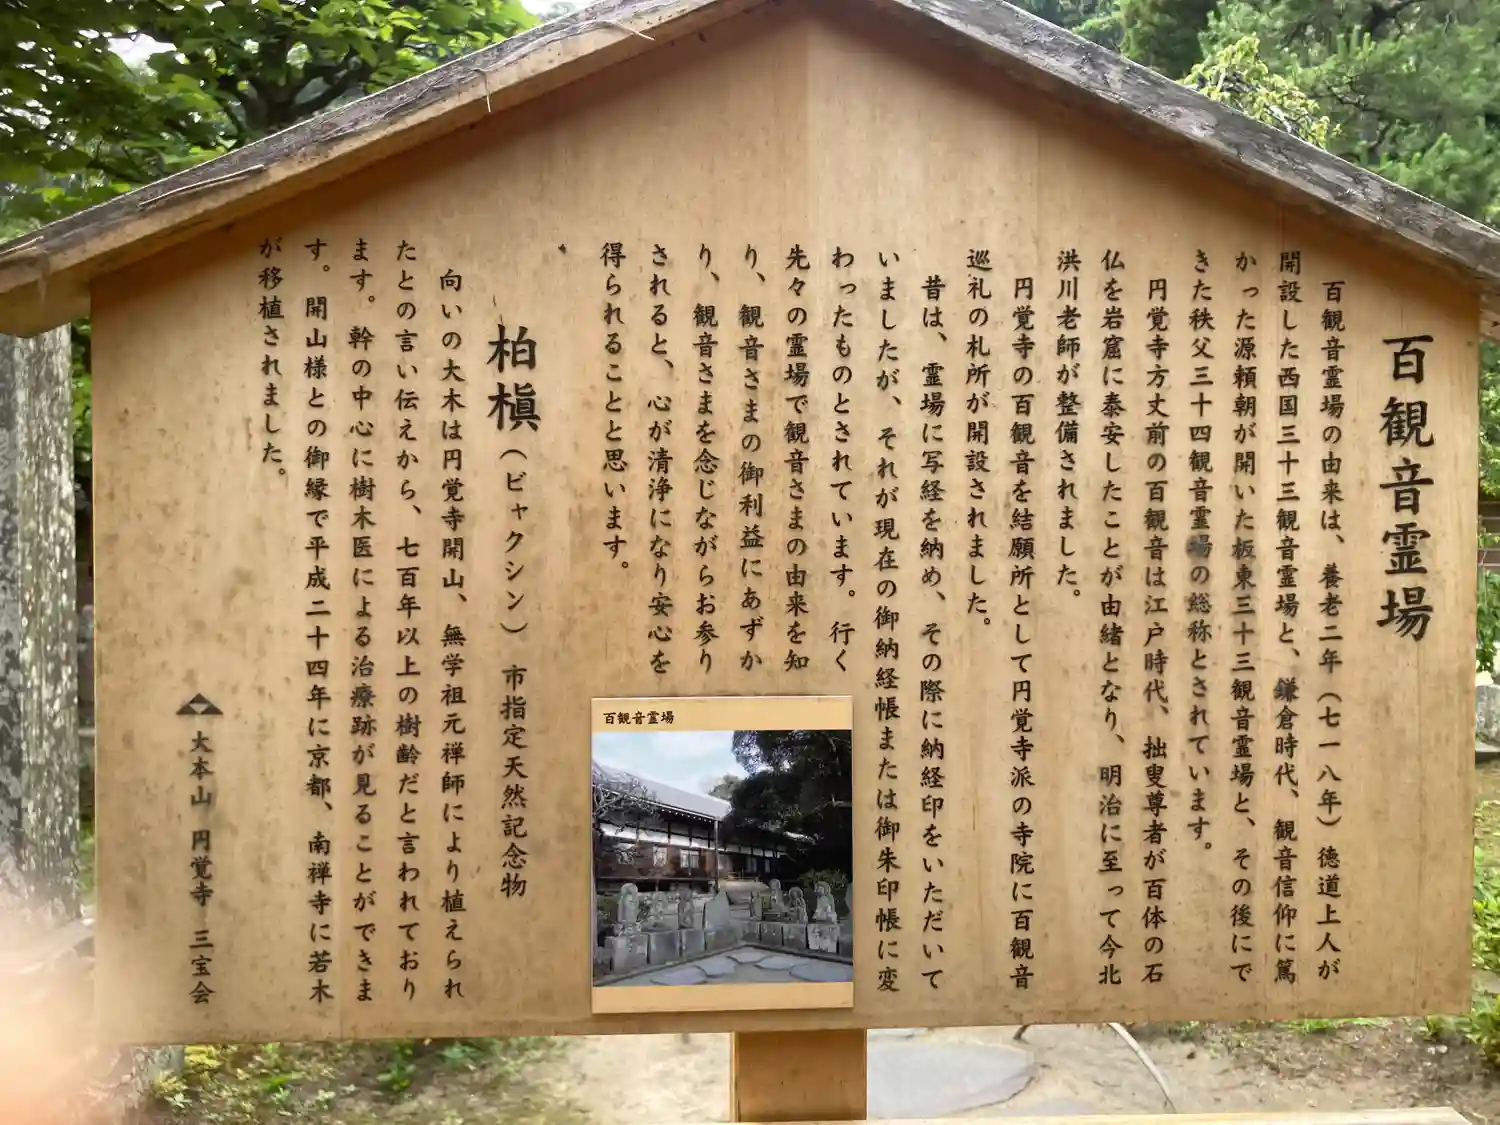 百観音霊場
百観音霊場の由来は、養老二年（七一八年）徳道上人が
開設した西国三十三観音霊場と、鎌倉時代、観音信仰に篤
かった源頼朝が開いた板東三十三観音霊場と、その後にで
きた秩父三十四観音霊場の総称とされています。
円覚寺方丈前の百観音は江戸時代、拙叟尊者が百体の石
仏を岩窟に泰安したことが由緒となり、明治に至って今北
洪川老師が整備されました。
円覚寺の百観音を結願所として円覚寺派の寺院に百観音
巡礼の札所が開設されました。
昔は、霊場に写経を納め、その際に納経印をいただいて
いましたが、それが現在の御納経帳または御朱印帳に変
わったものとされています。行く
先々の霊場で観音さまの由来を知
り、観音さまの御利益にあずか
り、観音さまを念じながらお参り
されると、心が清浄になり安心を
得られることと思います。
百観音霊場
柏槇（ビャクシン）市指定天然記念物
向いの大木は円覚寺開山、無学祖元禅師により植えられ
たとの言い伝えから、七百年以上の樹齢だと言われており
ます。幹の中心に樹木医による治療跡が見ることができま
す。開山様との御縁で平成二十四年に京都、南禅寺に若木
が移植されました。
大本山 円覚寺 三宝会